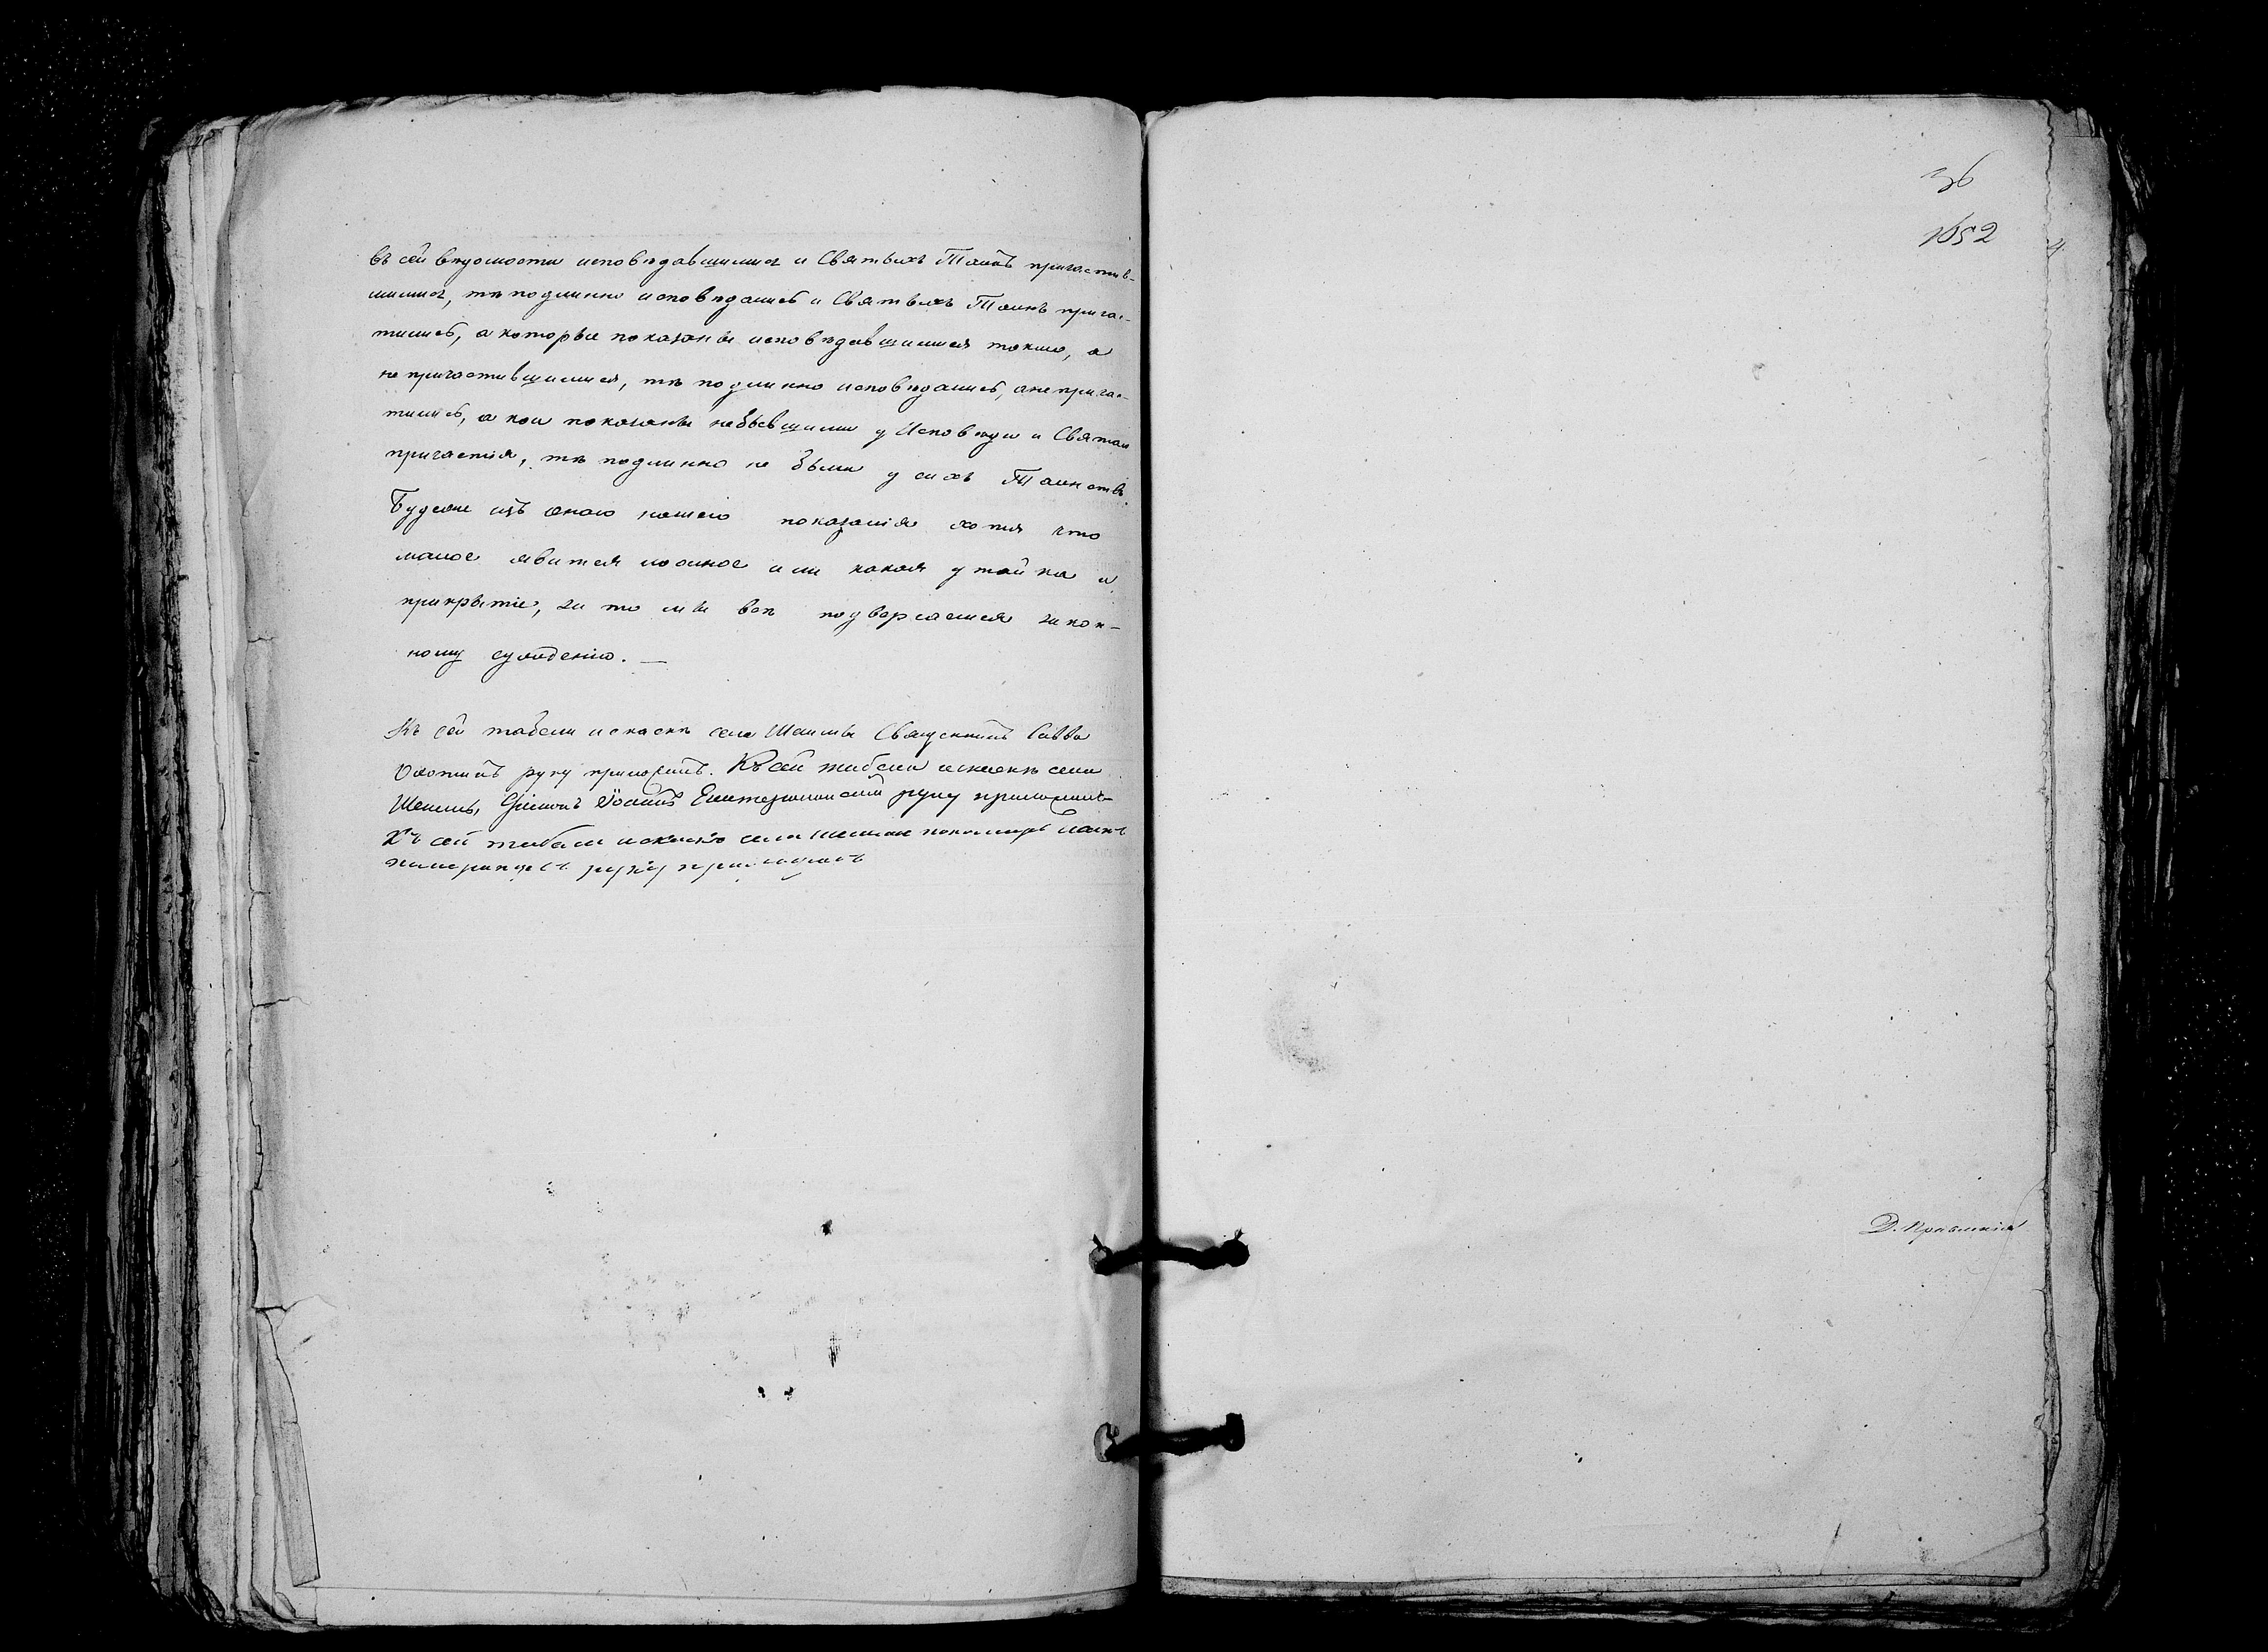 въ сей вѣдомости исповѣдавшимися и Святыхъ Таинъ причастив-
шимися, тѣ подлинно исповѣдались и Святыхъ Таинъ причас-
тились, а которые показаны исповѣдавшимися токмо, а
не причастившимися, тѣ подлинно исповѣдались, а не причас-
тились, а кои показаны небывшими у Исповѣди и Святаго
причастія, тѣ подлинно не были у сихъ Таинствъ.
Будеже изъ онаго нашего показанія хотя что
малое явится ложное или какая утайка и
прикрытіе, за то мы всѣ подвергаемся закон-
ному сужденію. —
Къ сей табели и сказкѣ села Священникъ Савва
руку приложилъ. Къ сей табели и сказкѣ села
Діаконъ Іоаннъ Екатерининскій руку приложилъ
Къ сей табели и сказкѣ села пономарь
руку приложилъ
36
1052